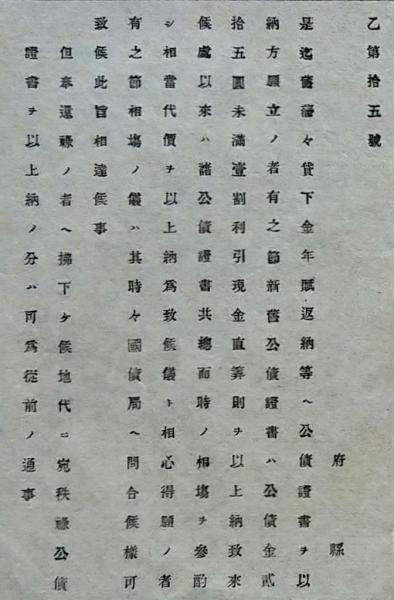 乙第拾五號
府縣
是迄舊藩々貸下金年賦返納等ヘ公債證書ヲ以
納方願立ノ者有之節新舊公債證書ハ公債金貳
拾五圓未滿壹割利引現金直算則ヲ以上納致來
候處以來ハ諸公債證書共總而時ノ相塲ヲ參酌
シ相當代價ヲ以上納爲致候儀ト相心得願ノ者
有之節相塲ノ儀ハ其時々國債局ヘ問合候樣可
致候此旨相達候事
但奉還祿ノ者ヘ拂下ケ候地代ニ宛秩祿公債
證書ヲ以上納ノ分ハ可爲從前ノ通事